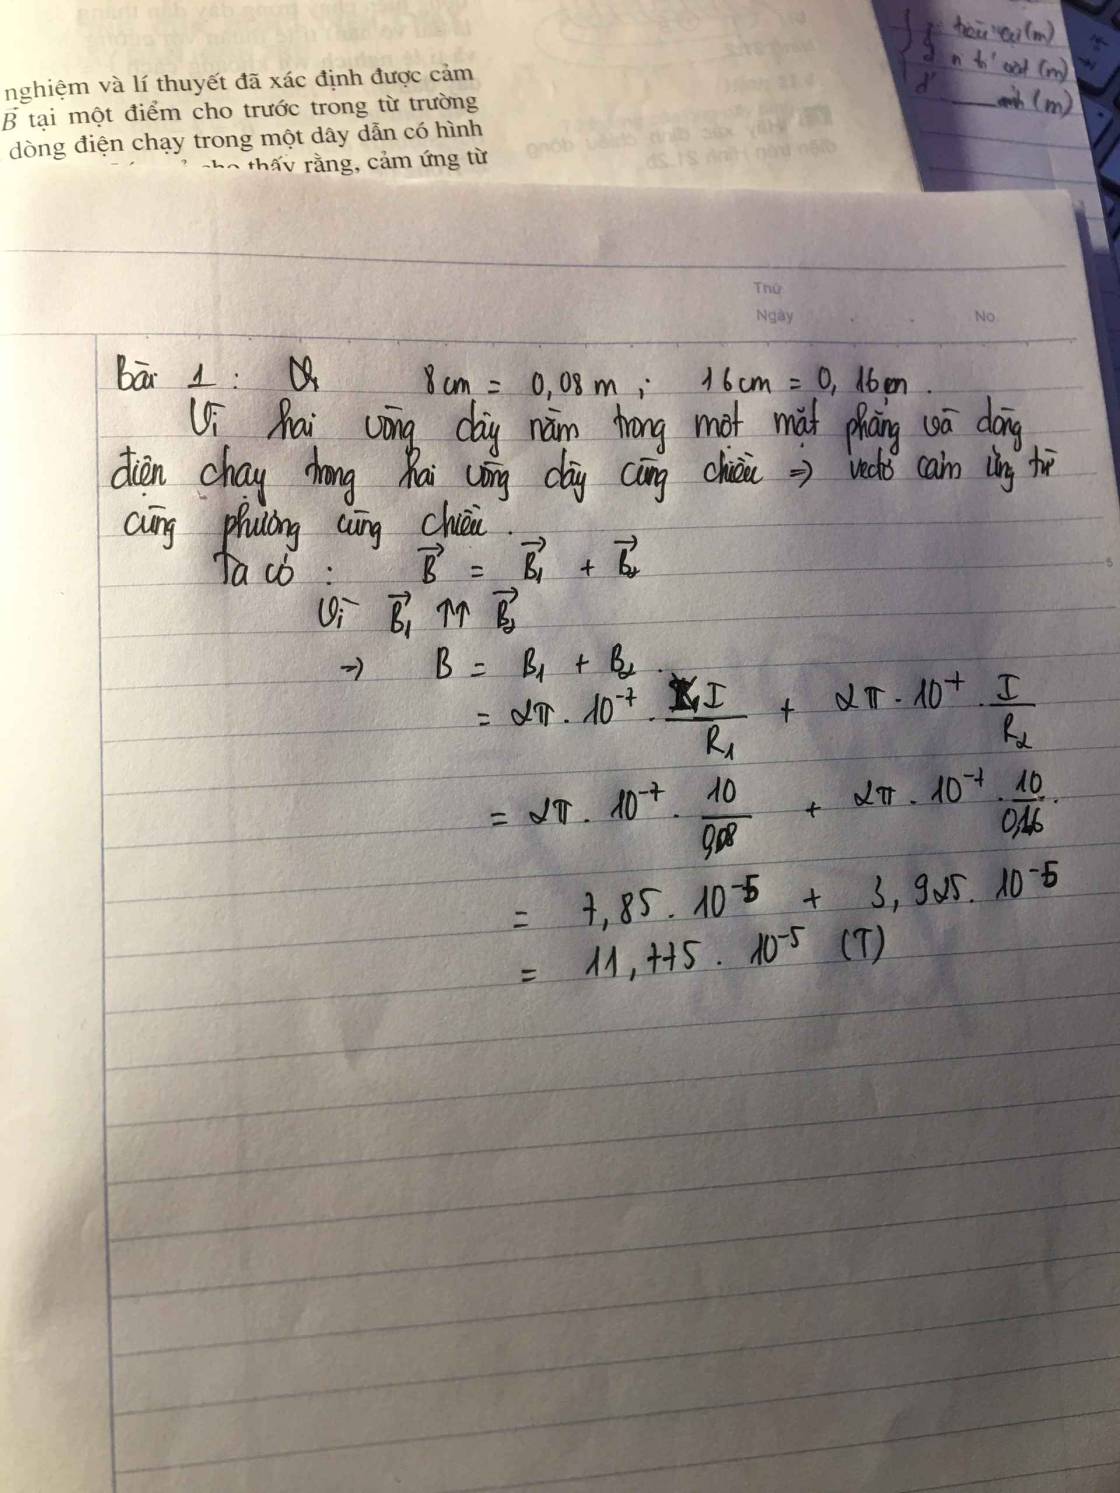 nghiệm và lí thuyết đã xác định được cảm
B⃗ tại một điểm cho trước trong từ trường
dòng điện chạy trong một dây dẫn có hình
cho thấy rằng, cảm ứng từ
(m)
(m)
d' ảnh (m)
Thứ
Ngày . . No
Bài 1 : 8 cm = 0,08 m ; 16 cm = 0,16 m .
Vì hai vòng dây nằm trong một mặt phẳng và dòng
điện chạy trong hai vòng dây cùng chiều => vectơ cảm ứng từ
cùng phương cùng chiều .
Ta có : B⃗ = B⃗₁ + B⃗₂
Vì B⃗₁ ↑↑ B⃗₂
=> B = B₁ + B₂ .
= 2π . 10⁻⁷ . I/R₁ + 2π . 10⁻⁷ . I/R₂
= 2π . 10⁻⁷ . 10/0,08 + 2π . 10⁻⁷ . 10/0,16 .
= 7,85 . 10⁻⁵ + 3,925 . 10⁻⁵
= 11,775 . 10⁻⁵ (T)